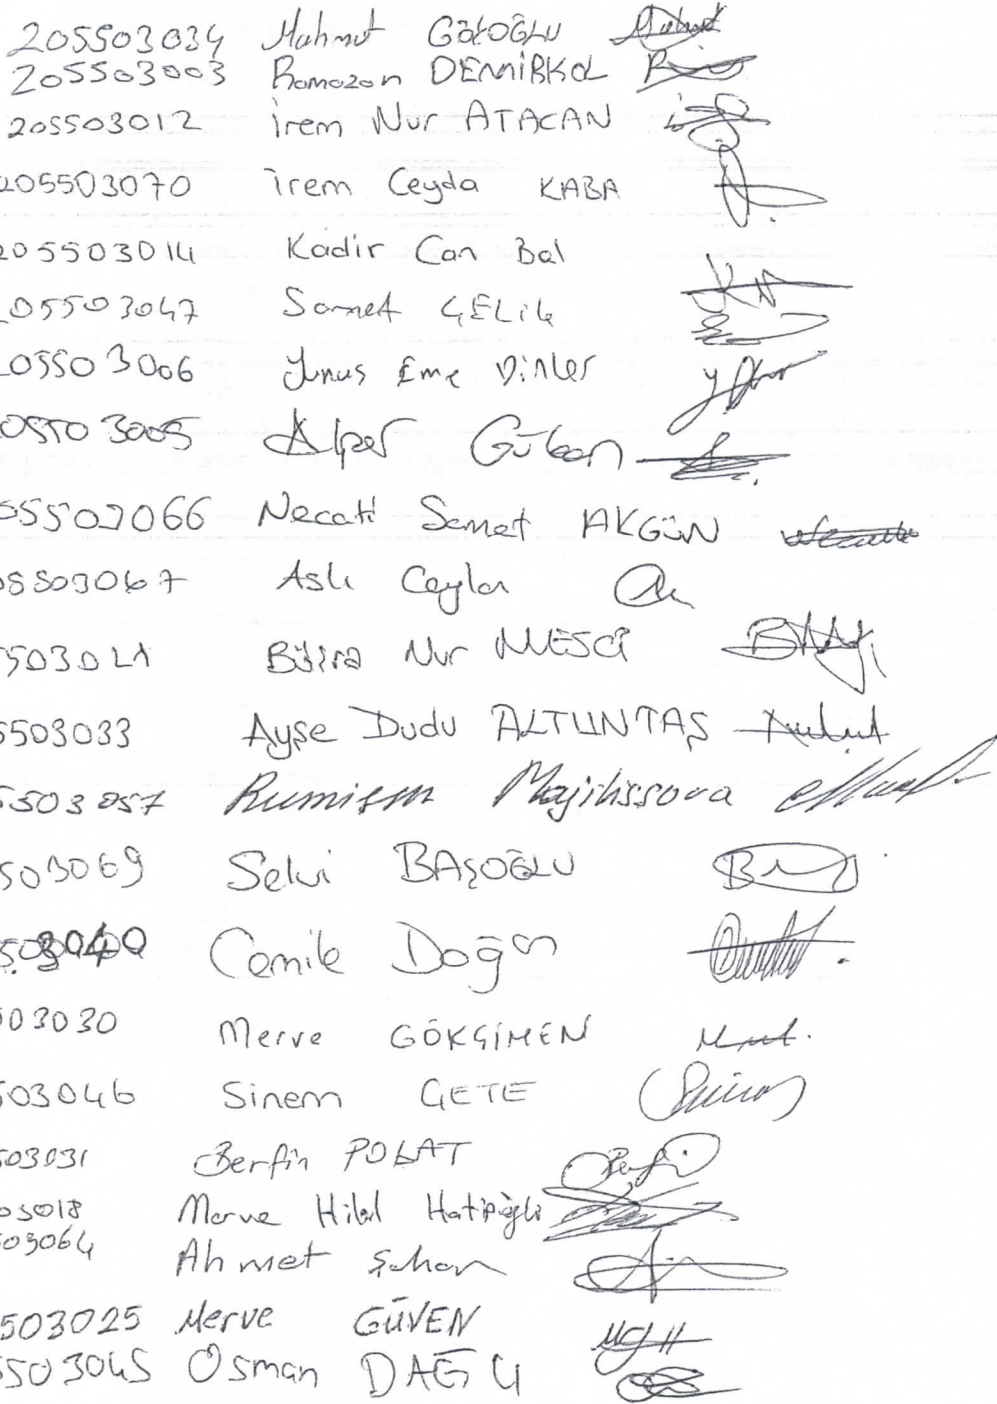 205503034 Mahmut GÖLOĞLU
205503003 Ramazan DEMİRKOL
205503012 İrem Nur ATACAN
205503070 İrem Ceyda KABA
205503014 Kadir Can Bal
205503047 Samet ÇELİK
205503006 Yunus Emre Dinler
205503005 Alper
205503066 Necati Samet AKGÜN
05503067 Aslı Ceylan
5503021 Büşra Nur MESCİ
5503033 Ayşe Dudu ALTUNTAŞ
5503057 Majilissova
503069 Selvi BAŞOĞLU
503040 Cemile Doğan
503030 Merve GÖKÇİMEN
503046 Sinem ÇETE
503031 Berfin POLAT
03018 Merve Hilal Hatipoğlu
503064 Ahmet Şahan
503025 Merve GÜVEN
5503045 Osman DAĞLI